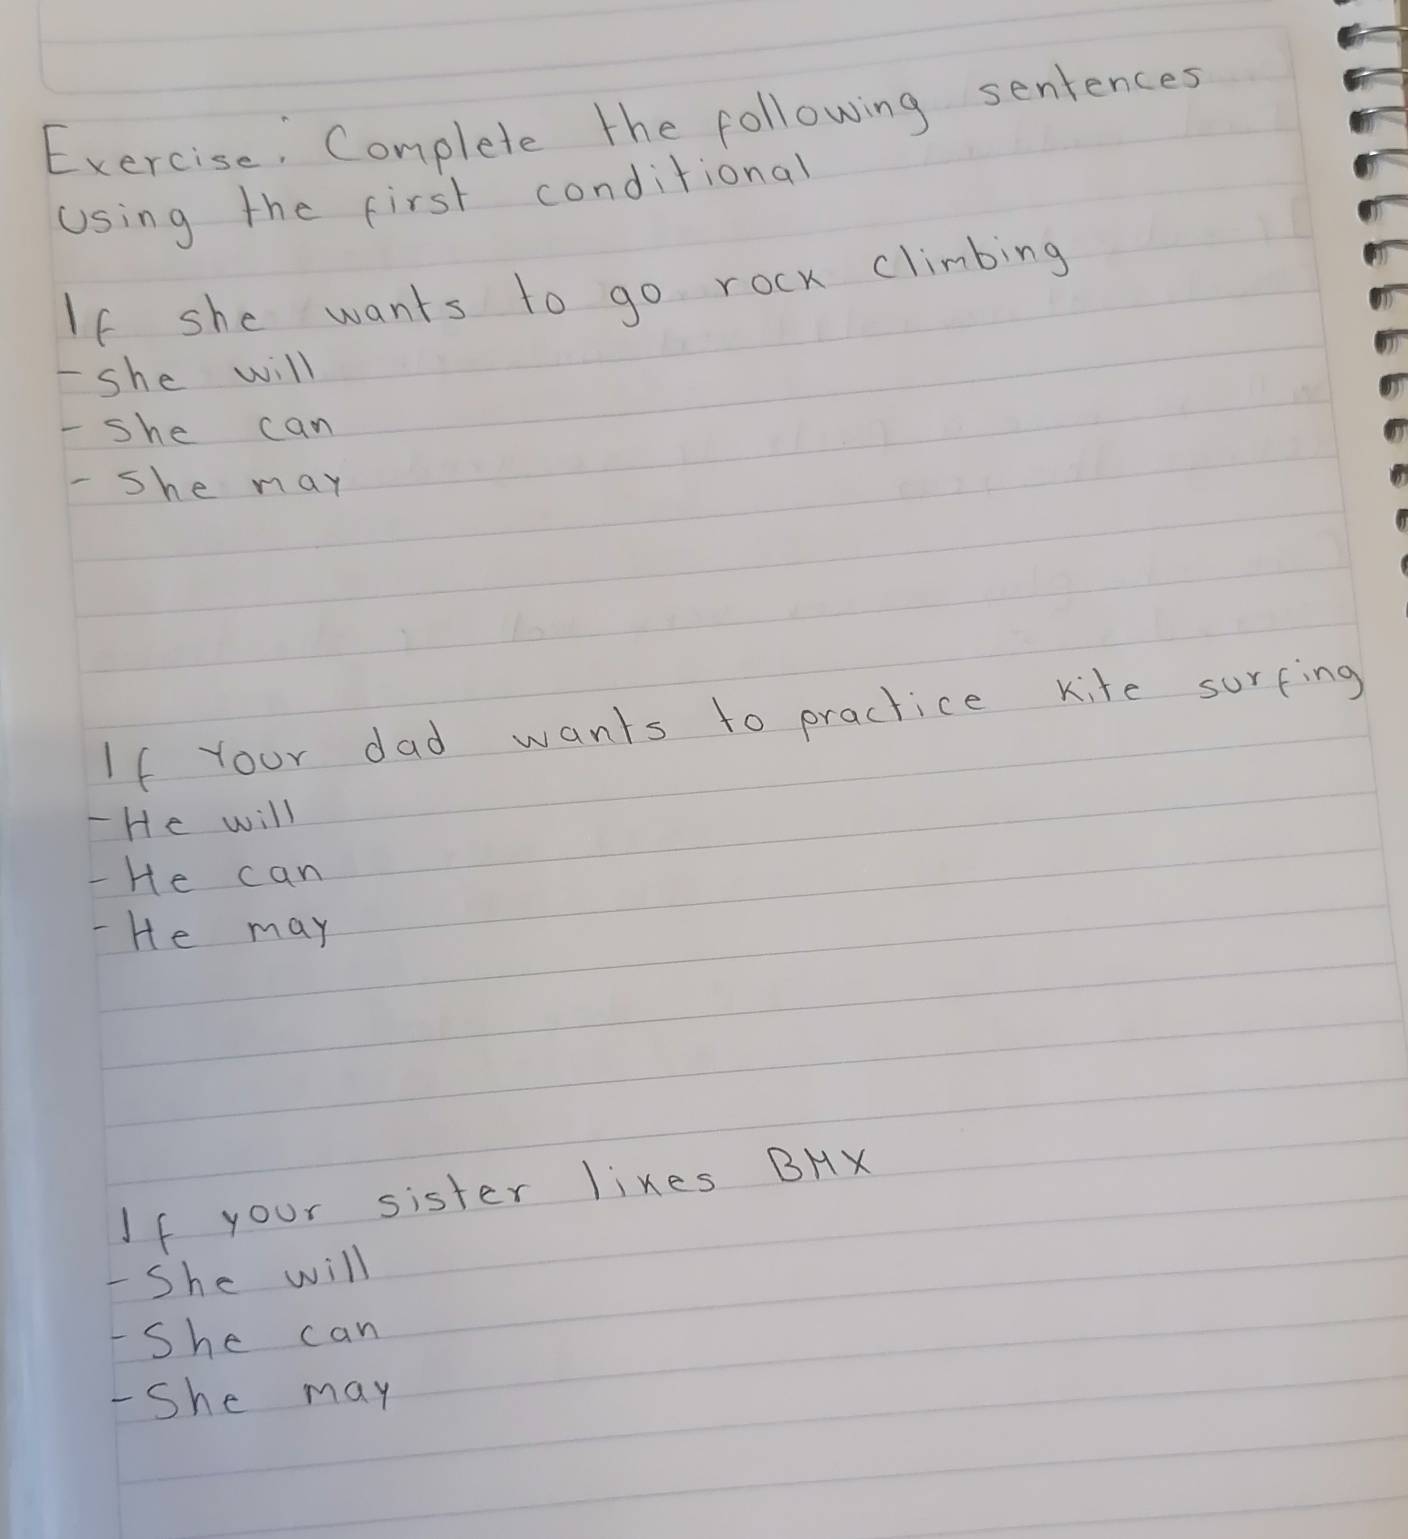 Exercise: Complete the following sentences
Using the first conditional
If she wants to go rock climbing
- she will
- she can
- she may
If your dad wants to practice kite surfing
- He will
- He can
- He may
If your sister likes BMX
- She will
- She can
- She may